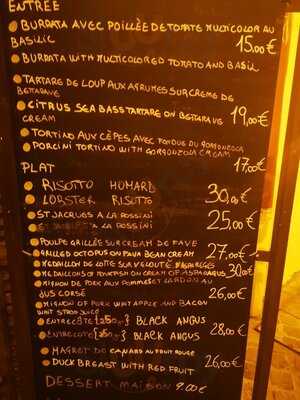 ENTRÉE
BURRATA AVEC POILLÉE DE TOMATE MULTICOLOR AU
BASILIC 15.00€
BURRATA WITH MULTICOLORED TOMATO AND BASIL
TARTARE DE LOUP AUX AGRUMES SUR CREME DE
BETTARAVE
CITRUS SEA BASS TARTARE ON BETTARAVE 19,00€
CREAM
TORTINO AUX CÈPES AVEC FONDUE DU GORGONZOLA
PORCINI TORTINO WITH GORGONZOLA CREAM 17,00€
PLAT
RISOTTO HOMARD 30,00€
LOBSTER RISOTTO
ST JACQUES A LA ROSSINI 25,00€
A LA ROSSINI
POULPE GRILLÉE SUR CREAM DE FAVE
GRILLED OCTOPUS ON FAVA BEAN CREAM 27,00€
MEDAILLON DE LOTTE SUR VELOUTÉ D'ASPARAGES
MEDAILLONS OF MONKFISH ON CREAM OF ASPARAGUS 30€
MIGNON DE PORK AUX POMMES ET LARDON AU
JUS CORSÉ 26,00€
MIGNON OF PORK WHIT APPLE AND BACON
WHIT STRONG JUICE
ENTRECOTE (250gr) BLACK ANGUS 28,00€
ENTRECOTE (250gr) BLACK ANGUS
MAGRET DU CANARD AU FRUIT ROUGE
DUCK BREAST WITH RED FRUIT 26,00€
DESSERT MAISON 9.00€